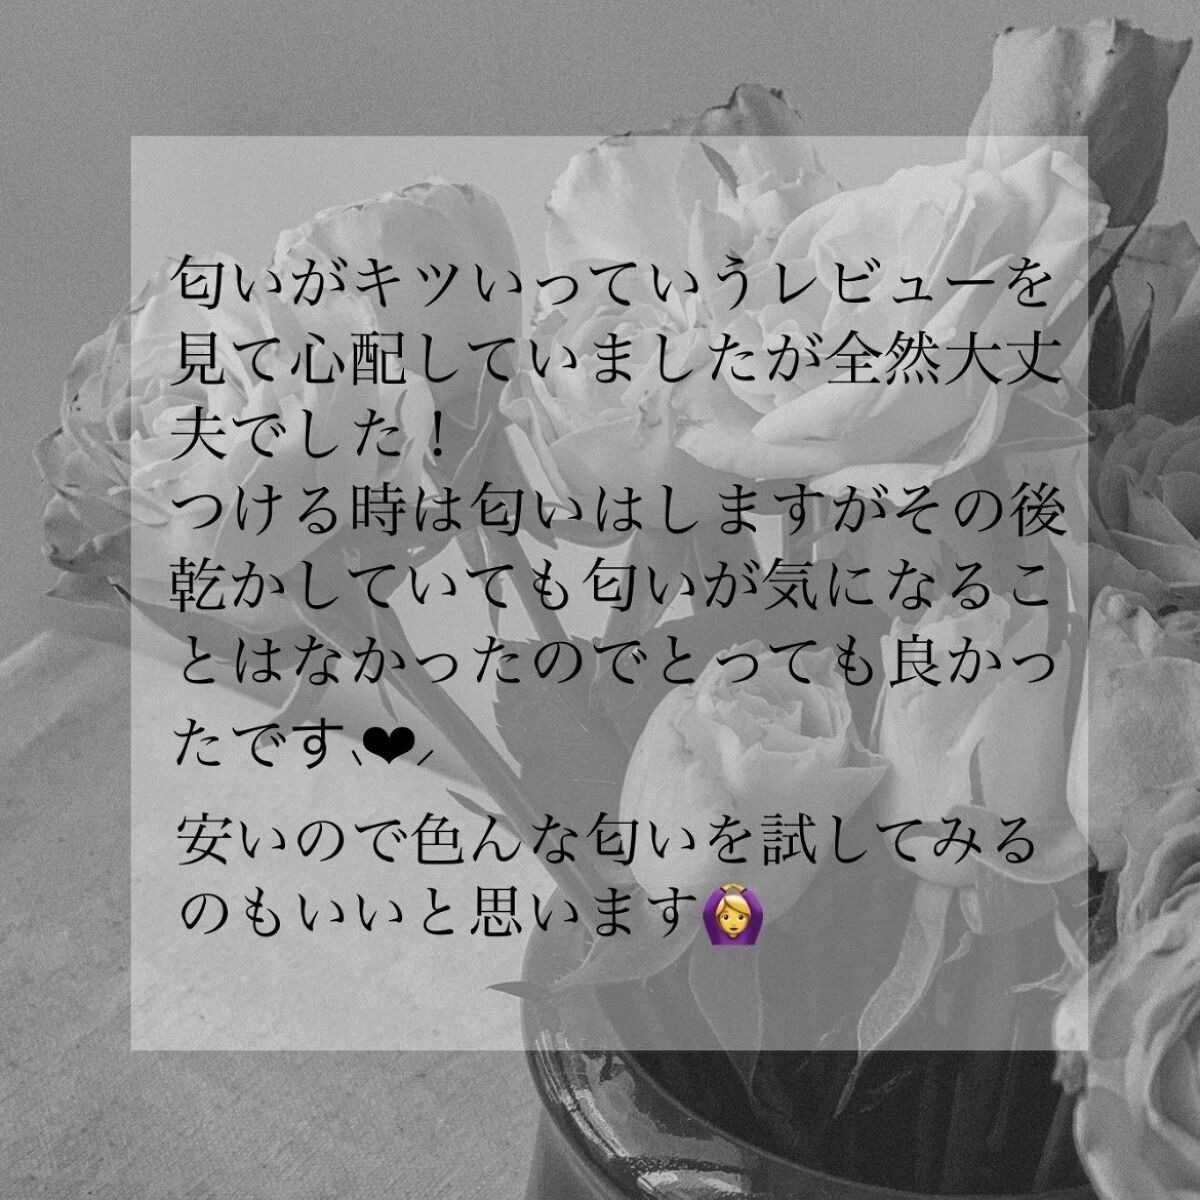 匂いがキツいっていうレビューを
見て心配していましたが全然大丈
夫でした！
つける時は匂いはしますがその後
乾かしていても匂いが気になるこ
とはなかったのでとっても良かっ
たです⸜❤︎⸝
安いので色んな匂いを試してみる
のもいいと思います🙆‍♀️